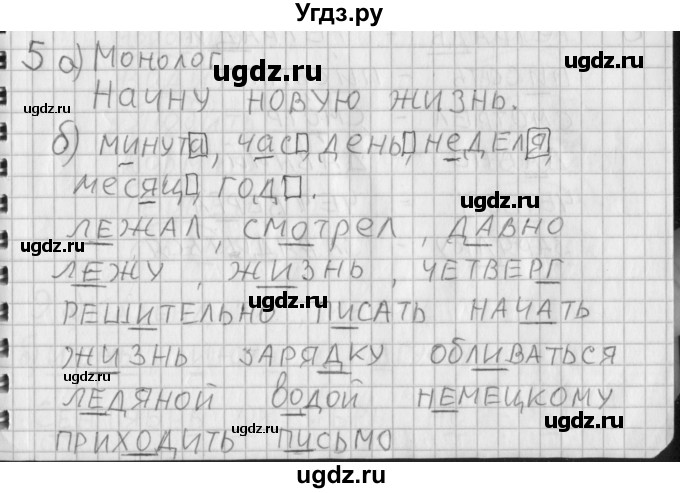 Угдз.ру
5 а) Монолог
Начну новую жизнь.
б) минута, час, день, неделя,
месяц, год.
ЛЕЖАЛ, СМОТРЕЛ, ДАВНО
ЛЕЖУ, ЖИЗНЬ, ЧЕТВЕРГ
РЕШИТЕЛЬНО ПИСАТЬ НАЧАТЬ
ЖИЗНЬ ЗАРЯДКУ ОБЛИВАТЬСЯ
ЛЕДЯНОЙ ВОДОЙ НЕМЕЦКОМУ
ПРИХОДИТЬ ПИСЬМО
ugdz.ru
ugdz.ru
ugdz.ru
ugdz.ru
ugdz.ru
ugdz.ru
ugdz.ru
ugdz.ru
ugdz.ru
ugdz.ru
ugdz.ru